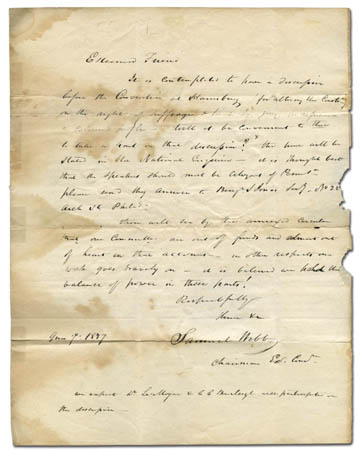 Esteemed Friend
It is contemplated to have a discussion
before the Convention at Harrisburg for altering the Const.
on the right of suffrage
will it be convenient to thee
to take a part in that discussion? the time will be
stated in the National Enquirer — it is thought best
that the speakers should be citizens of Penna.
please send thy answer to Benj. S Jones
Arch St Phila.
thou will see by the annexed circular
that our Committee are out of funds and almost out
of heart on that account — in other respects our
work goes bravely on — it is believed we hold the
balance of power in these parts.
Respectfully
thine &c
6mo 7. 1837 Samuel Webb
Chairman Ex. Com.
we expect Dr LeMoyne & C C Burleigh will participate in
the discussion —